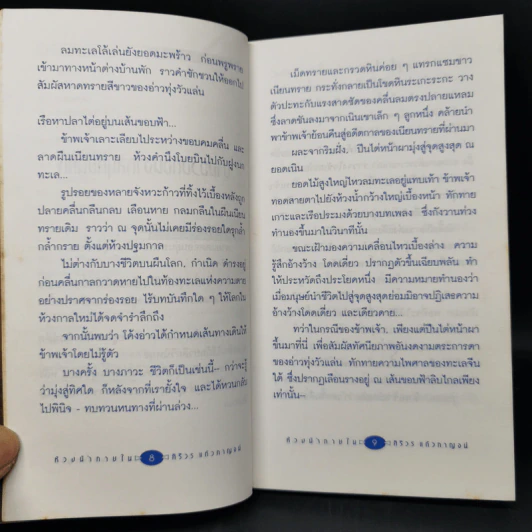 ลมทะเลโล้เล่นยังยอดมะพร้าว ก่อนพรูพราย
เข้ามาทางหน้าต่างบ้านพัก ราวคำชักชวนให้ออกไป
สัมผัสหาดทรายสีขาวของอ่าวทุ่งวัวแล่น
เรือหาปลาไต่อยู่บนเส้นขอบฟ้า...
ข้าพเจ้าเลาะเลียบไประหว่างขอบคมคลื่น และ
ลาดผืนเนียนทราย ห้วงคำนึงโบยบินไปกับฝูงนก
ทะเล...
รูปรอยของหลายจังหวะก้าวที่ทิ้งไว้เบื้องหลังถูก
ปลายคลื่นกลืนกลบ เลือนหาย กลมกลืนในผืนเนียน
ทรายเดิม ราวว่า ณ จุดนั้นไม่เคยมีร่องรอยใดรุกล้ำ
กล้ำกราย ตั้งแต่ห้วงปฐมกาล
ไม่ต่างกับบางชีวิตบนผืนโลก, กำเนิด ดำรงอยู่
ก่อนคลื่นกาลกวาดหายไปในท้องทะเลแห่งความตาย
อย่างปราศจากร่องรอย ไร้บทบันทึกใด ๆ ให้โลกใน
ห้วงกาลใหม่ได้จดจำรำลึกถึง
จากนั้นพบว่า โค้งอ่าวได้กำหนดเส้นทางเดินให้
ข้าพเจ้าโดยไม่รู้ตัว
บางครั้ง บางภาวะ ชีวิตก็เป็นเช่นนี้-- กว่าจะรู้
ว่ามุ่งสู่ทิศใด ก็หลังจากที่เรายั้งใจ และได้หวนกลับ
ไปพินิจ - ทบทวนหนทางที่ผ่านล่วง...
ห้วงน้ำภายใน 8 ศิริวร แก้วกาญจน์
เม็ดทรายและกรวดหินค่อย ๆ แทรกแซมขาว
เนียนทราย กระทั่งกลายเป็นโขดหินระเกะระกะ วาง
ตัวปะทะกับแรงสาดซัดของคลื่นลมตรงปลายแหลม
ซึ่งลาดชันลงมาจากเนินเขาเล็ก ๆ ลูกหนึ่ง คล้ายนำ
พาข้าพเจ้าย้อนคืนสู่อดีตกาลของเนียนทรายที่ผ่านมา
ผละจากริมฝั่ง, ปีนไต่หน้าผามุ่งสู่จุดสูงสุด ณ
ยอดเนิน
ยอดไม้สูงใหญ่ไหวลมทะเลอยู่แทบเท้า ข้าพเจ้า
ทอดสายตาไปยังห้วงน้ำกว้างใหญ่เบื้องหน้า ทักทาย
เกาะและเรือประมงด้วยบางบทเพลง ซึ่งกังวานท่วง
ทำนองขึ้นมาในวินาทีนั้น
ขณะเฝ้ามองความเคลื่อนไหวเบื้องล่าง ความ
รู้สึกอ้างว้าง โดดเดี่ยว ปรากฏตัวขึ้นเฉียบพลัน ทำ
ให้ประหวัดถึงประโยคหนึ่ง มีความหมายทำนองว่า
เมื่อมนุษย์นำชีวิตไปสู่จุดสูงสุดย่อมมิอาจปฏิเสธความ
อ้างว้างโดดเดี่ยว และเดียวดาย...
ทว่าในกรณีของข้าพเจ้า, เพียงแค่ปีนไต่หน้าผา
ขึ้นมาที่นี่ เพื่อสัมผัสทัศนียภาพอันงดงามตระการตา
ของอ่าวทุ่งวัวแล่น ทักทายความไพศาลของทะเลจีน
ใต้ ซึ่งปรากฏเลือนรางอยู่ ณ เส้นขอบฟ้าลิบไกลเพียง
เท่านั้น--
ห้วงน้ำภายใน 9 ศิริวร แก้วกาญจน์